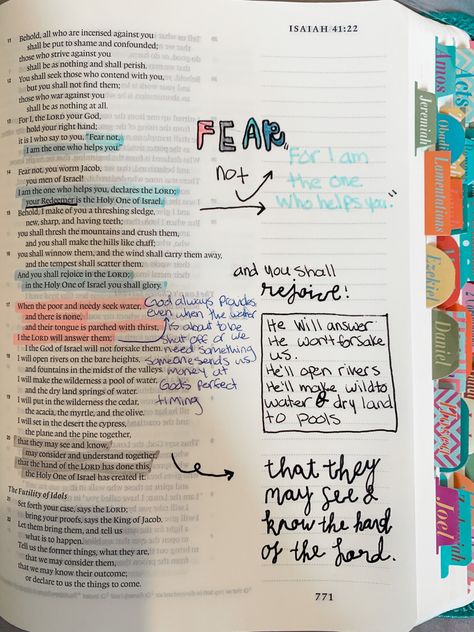 ISAIAH 41:22
11 Behold, all who are incensed against you
shall be put to shame and confounded;
those who strive against you
shall be as nothing and shall perish.
12 You shall seek those who contend with you,
but you shall not find them;
those who war against you
shall be as nothing at all.
13 For I, the LORD your God,
hold your right hand;
it is I who say to you, "Fear not,
I am the one who helps you."
14 Fear not, you worm Jacob,
you men of Israel!
I am the one who helps you, declares the LORD;
your Redeemer is the Holy One of Israel.
15 Behold, I make of you a threshing sledge,
new, sharp, and having teeth;
you shall thresh the mountains and crush them,
and you shall make the hills like chaff;
16 you shall winnow them, and the wind shall carry them away,
and the tempest shall scatter them.
And you shall rejoice in the LORD;
in the Holy One of Israel you shall glory.
17 When the poor and needy seek water,
and there is none,
and their tongue is parched with thirst,
I the LORD will answer them;
I the God of Israel will not forsake them.
18 I will open rivers on the bare heights,
and fountains in the midst of the valleys.
I will make the wilderness a pool of water,
and the dry land springs of water.
19 I will put in the wilderness the cedar,
the acacia, the myrtle, and the olive.
I will set in the desert the cypress,
the plane and the pine together,
20 that they may see and know,
may consider and understand together,
that the hand of the LORD has done this,
the Holy One of Israel has created it.
The Futility of Idols
21 Set forth your case, says the LORD;
bring your proofs, says the King of Jacob.
22 Let them bring them, and tell us
what is to happen.
Tell us the former things, what they are,
that we may consider them,
that we may know their outcome;
or declare to us the things to come.
God always provides
even when the water
is about to be
shut off or we
need something
someone sends us
money at
God's perfect
timing
FEAR
not
"For I am
the one
Who helps you."
and you shall
rejoice!
He will answer
He won't forsake
us.
He'll open rivers
He'll make wild to
water & dry land
to pools
that they
may see &
know the hand
of the Lord.
771
Amos
Acts
Obad
Jeremiah
Lamentations
Ezekiel
Daniel
Hosea
Joel